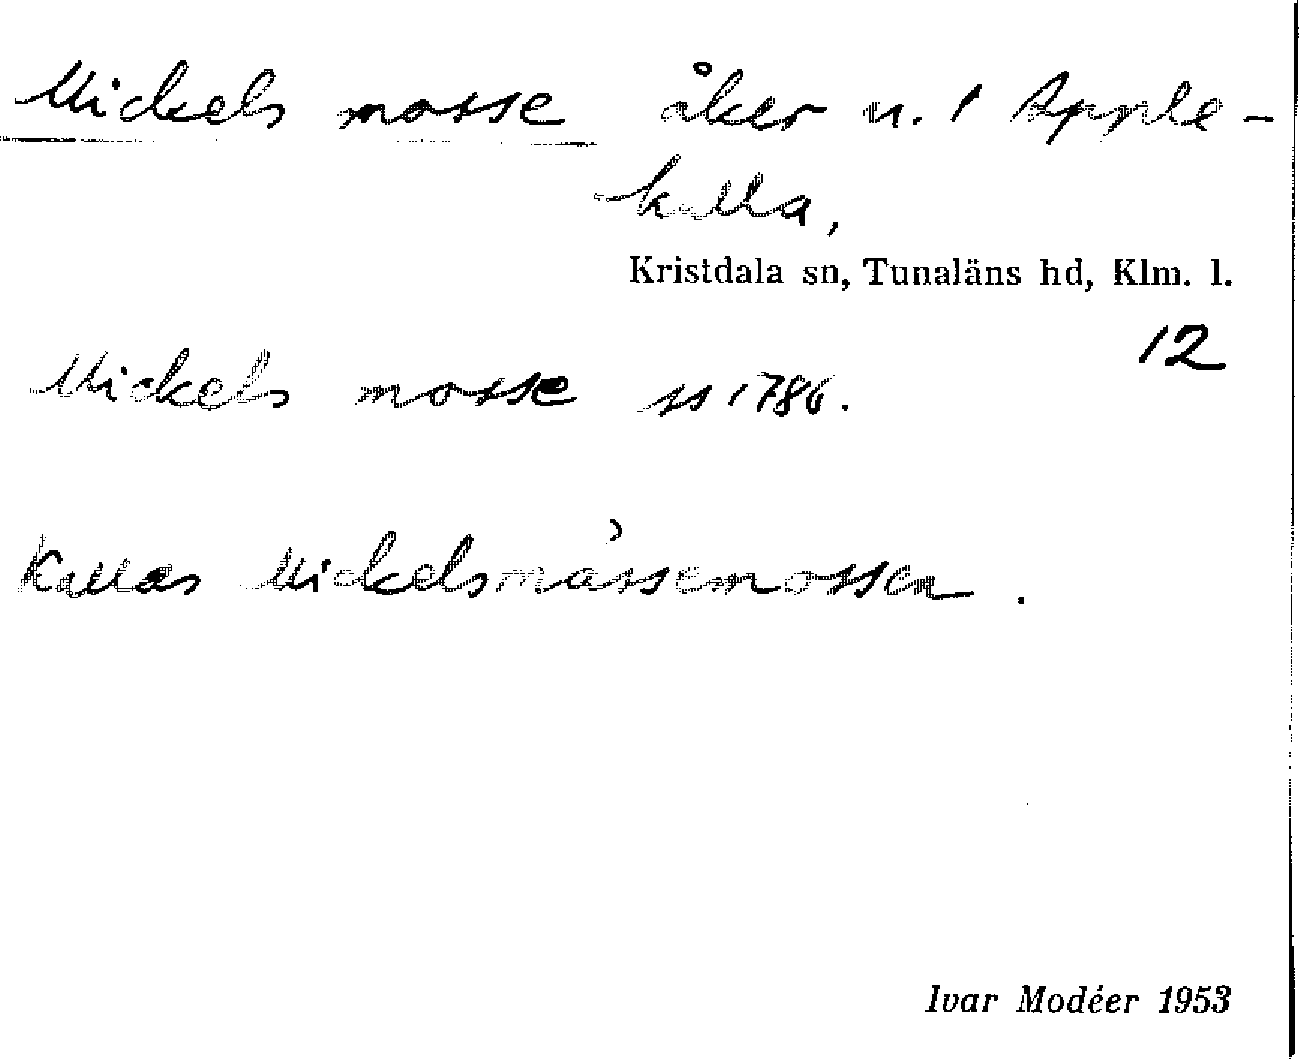 Mickels mosse åker n. 1 Apple-
kulla,
Kristdala sn, Tunaläns hd, Klm. l.
12
Mickels mosse ss 1786.
Kallas Mickelsmässemossen.
Ivar Modéer 1953